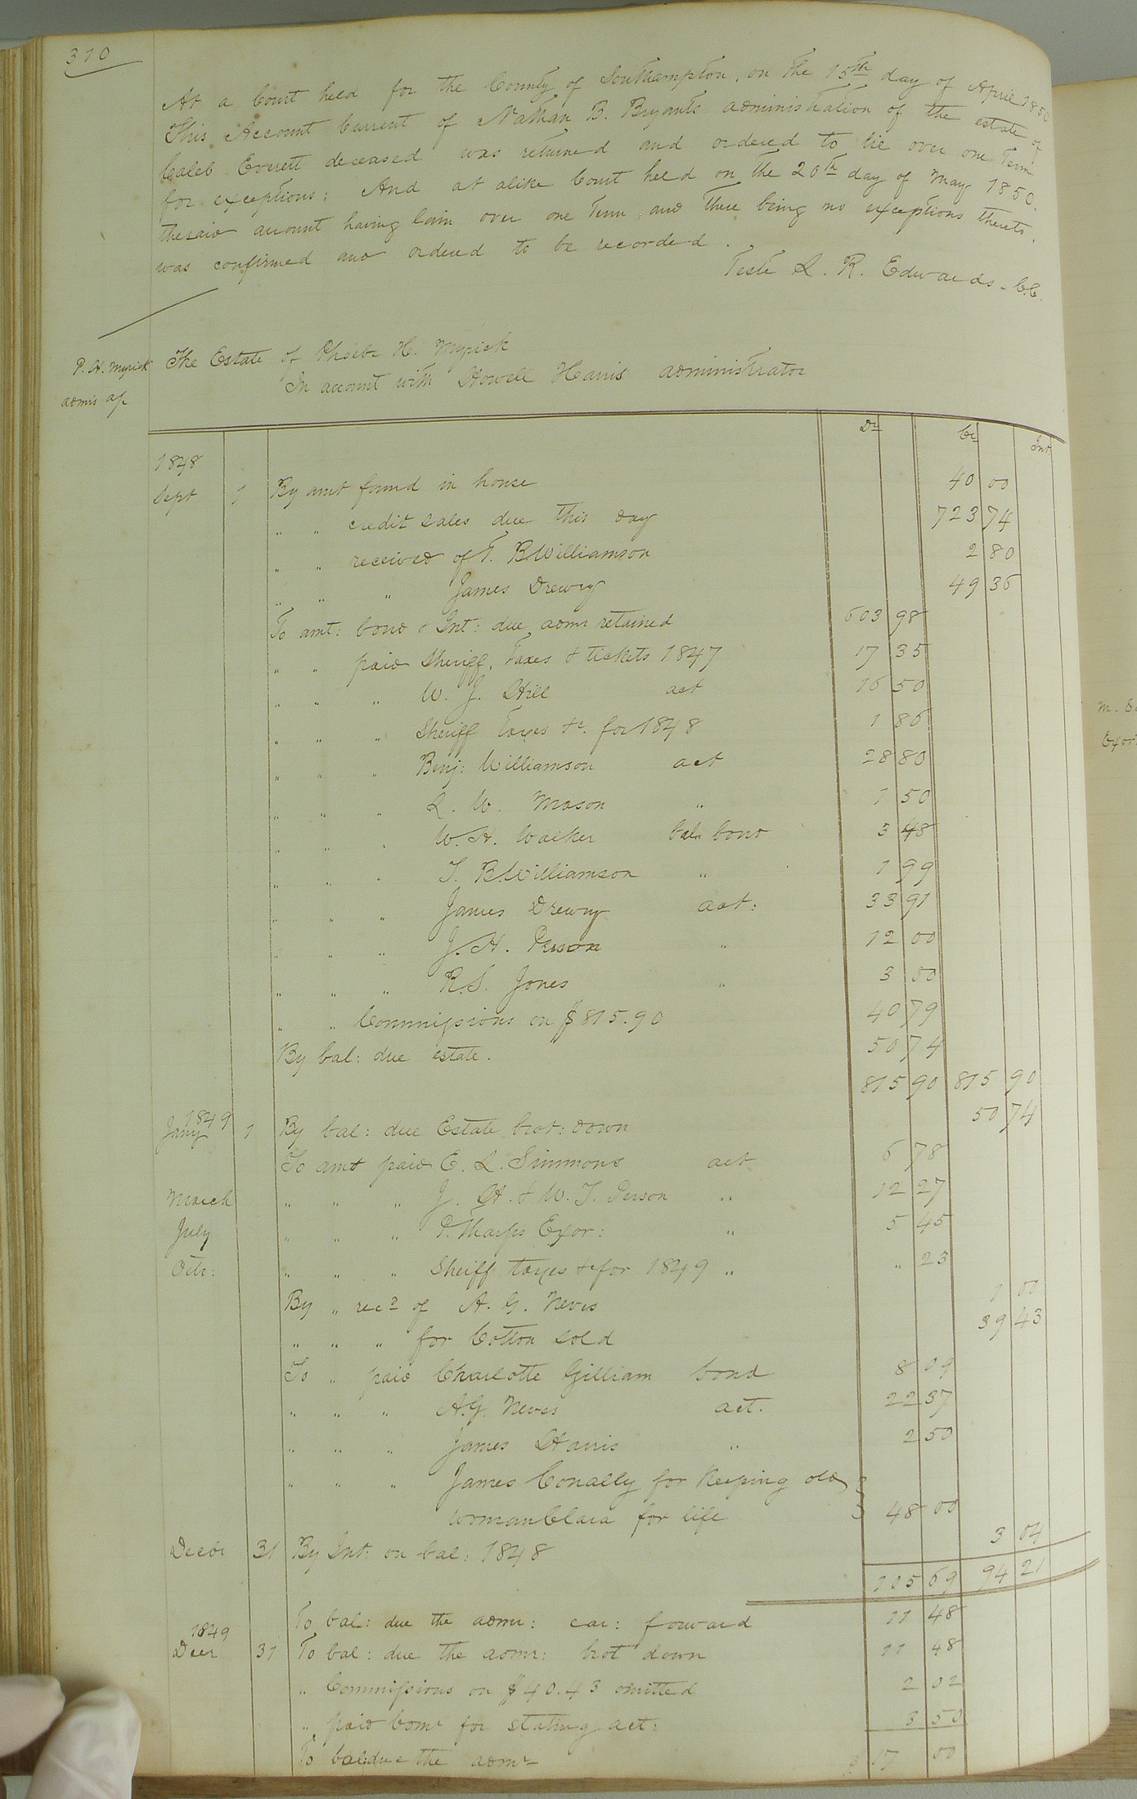 310
At a Court held for the County of Southampton, on the 15th day of April 1850
This Account Current of Nathan B. Bryants administration of the estate of
Caleb Everett deceased was returned and ordered to lie over one Term
for exceptions; And at alike Court held on the 20th day of May 1850.
thesaid account having lain over one Term and there being no exceptions thereto.
was confirmed and ordered to be recorded.
Teste L. R. Edwards. C.C.
P. H. Myrick
admr ap
The Estate of Phoebe H. Myrick
In account with Howell Harris administrator
Dr Cr Int
1848
Sept 1 By amt found in house 40 00
" " credit sales due this day 723 74
" " received of T. B Williamson 2 80
" " " James Drewry 49 36
To amt: bond & Int: due admr retained 603 98
" " paid Sheriff, Taxes & tickets 1847 17 35
" " " W. J. Hill act 16 50
" " " Sheriff Taxes &c. for 1848 1 86
" " " Benj: Williamson act 28 80
" " " L. W. Mason " 1 50
" " " W. H. Walker bal. bond 3 48
" " " T. B Williamson " 1 99
" " " James Drewry act: 33 91
" " " J. H. Person " 12 00
" " " R. S. Jones " 3 00
" " Commissions on $815.90 40 79
By bal: due estate. 50 74
815 90 815 90
1849
Jany 1 By bal: due Estate brot: down 50 74
To amt paid E. L. Simmons act 6 78
March " " " J. H. & W. T. Person " 12 27
July " " " P. Tharps Exor: " 5 45
Octr: " " " Sheriff taxes &c for 1849 " " 23
By " recd of A. G. Neves 1 00
" " " for Cotton sold 39 43
To " paid Charlotte Gilliam bond 8 09
" " " A. G. Neves act. 22 37
" " " James Harris " 2 50
" " " James Conally for keeping old
woman Clara for life 48 00
Decbr 31 By Int: on bal: 1848 3 04
105 69 94 21
To bal: due the admr: car: forward 11 48
1849
Decr 31 To bal: due the admr: brot down 11 48
" Commissions on $40.43 omitted 2 02
" paid Comr for stating act: 3 50
To bal: due the admr $ 17 00
m.
Exor